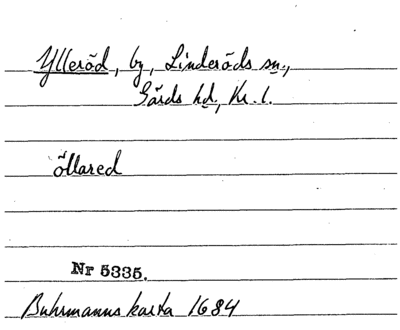 Ylleröd, by, Linderöds sn.,
Gärds hd, Kr. l.
öllared
Nr 5335.
Buhrmanns karta 1684